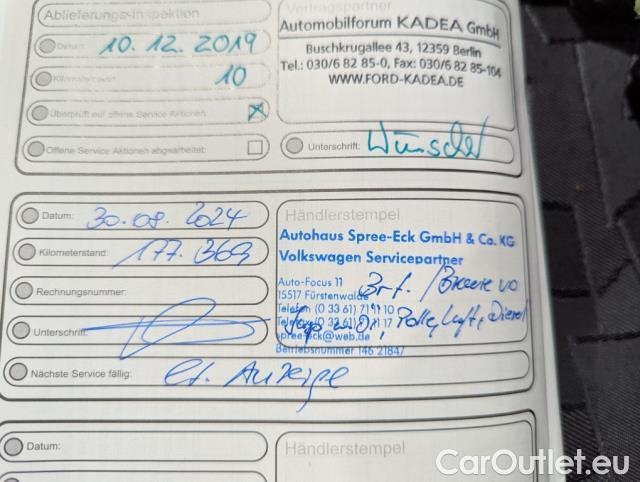 Ablieferungs-Inspektion
Vertragspartner
Automobilforum KADEA GmbH
Buschkrugallee 43, 12359 Berlin
Tel.: 030/6 82 85-0, Fax: 030/6 82 85-104
WWW.FORD-KADEA.DE
Datum: 10.12.2019
Kilometerstand: 10
Überprüft auf offene Service Aktionen:
Offene Service Aktionen abgearbeitet:
Unterschrift: Wünscher
Datum: 30.08.2024
Kilometerstand: 177.369
Rechnungsnummer:
Unterschrift:
Nächste Service fällig: lt. Anzeige
Händlerstempel
Autohaus Spree-Eck GmbH & Co. KG
Volkswagen Servicepartner
Auto-Focus 11
15517 Fürstenwalde
Telefon (0 33 61) 71 11 10
spree-eck@web.de
Betriebsnummer 146 21847
Polle, Luft, Diesel
Datum:
Händlerstempel
Kilometerstand:
CarOutlet.eu